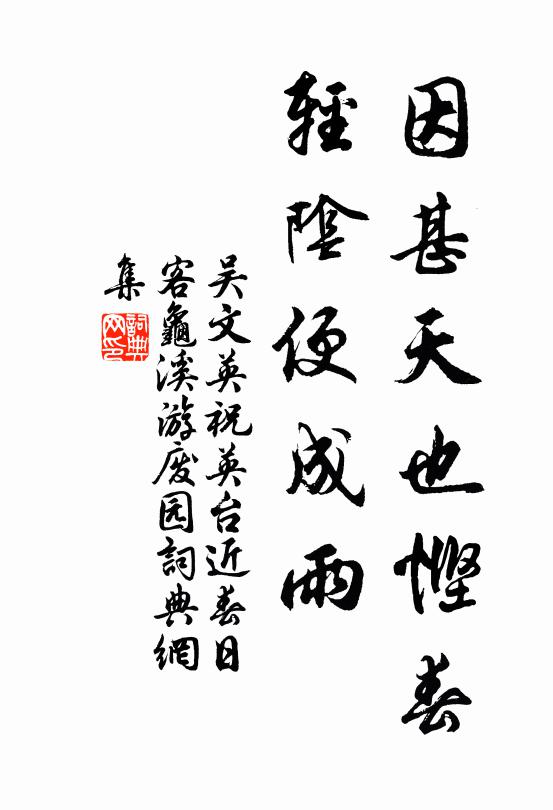 因甚天也慳春
輕陰便成雨
吴文英祝英台近春日
客龜溪游废园詞典網
集
詞典網印